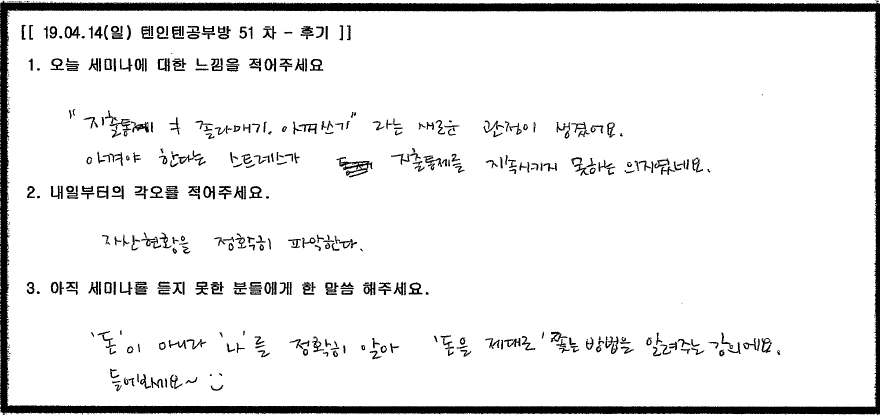 [[ 19.04.14(일) 텐인텐공부방 51 차 - 후기 ]]
1. 오늘 세미나에 대한 느낌을 적어주세요
"지출통제 ≠ 졸라매기, 아껴쓰기" 라는 새로운 관점이 생겼어요.
아껴야 한다는 스트레스가 지출통제를 지속시키지 못하는 의지였네요.
2. 내일부터의 각오를 적어주세요.
자산현황을 정확히 파악한다.
3. 아직 세미나를 듣지 못한 분들에게 한 말씀 해주세요.
'돈'이 아니라 '나'를 정확히 알아 '돈을 제대로' 쫓는 방법을 알려주는 강의에요.
들어보세요~